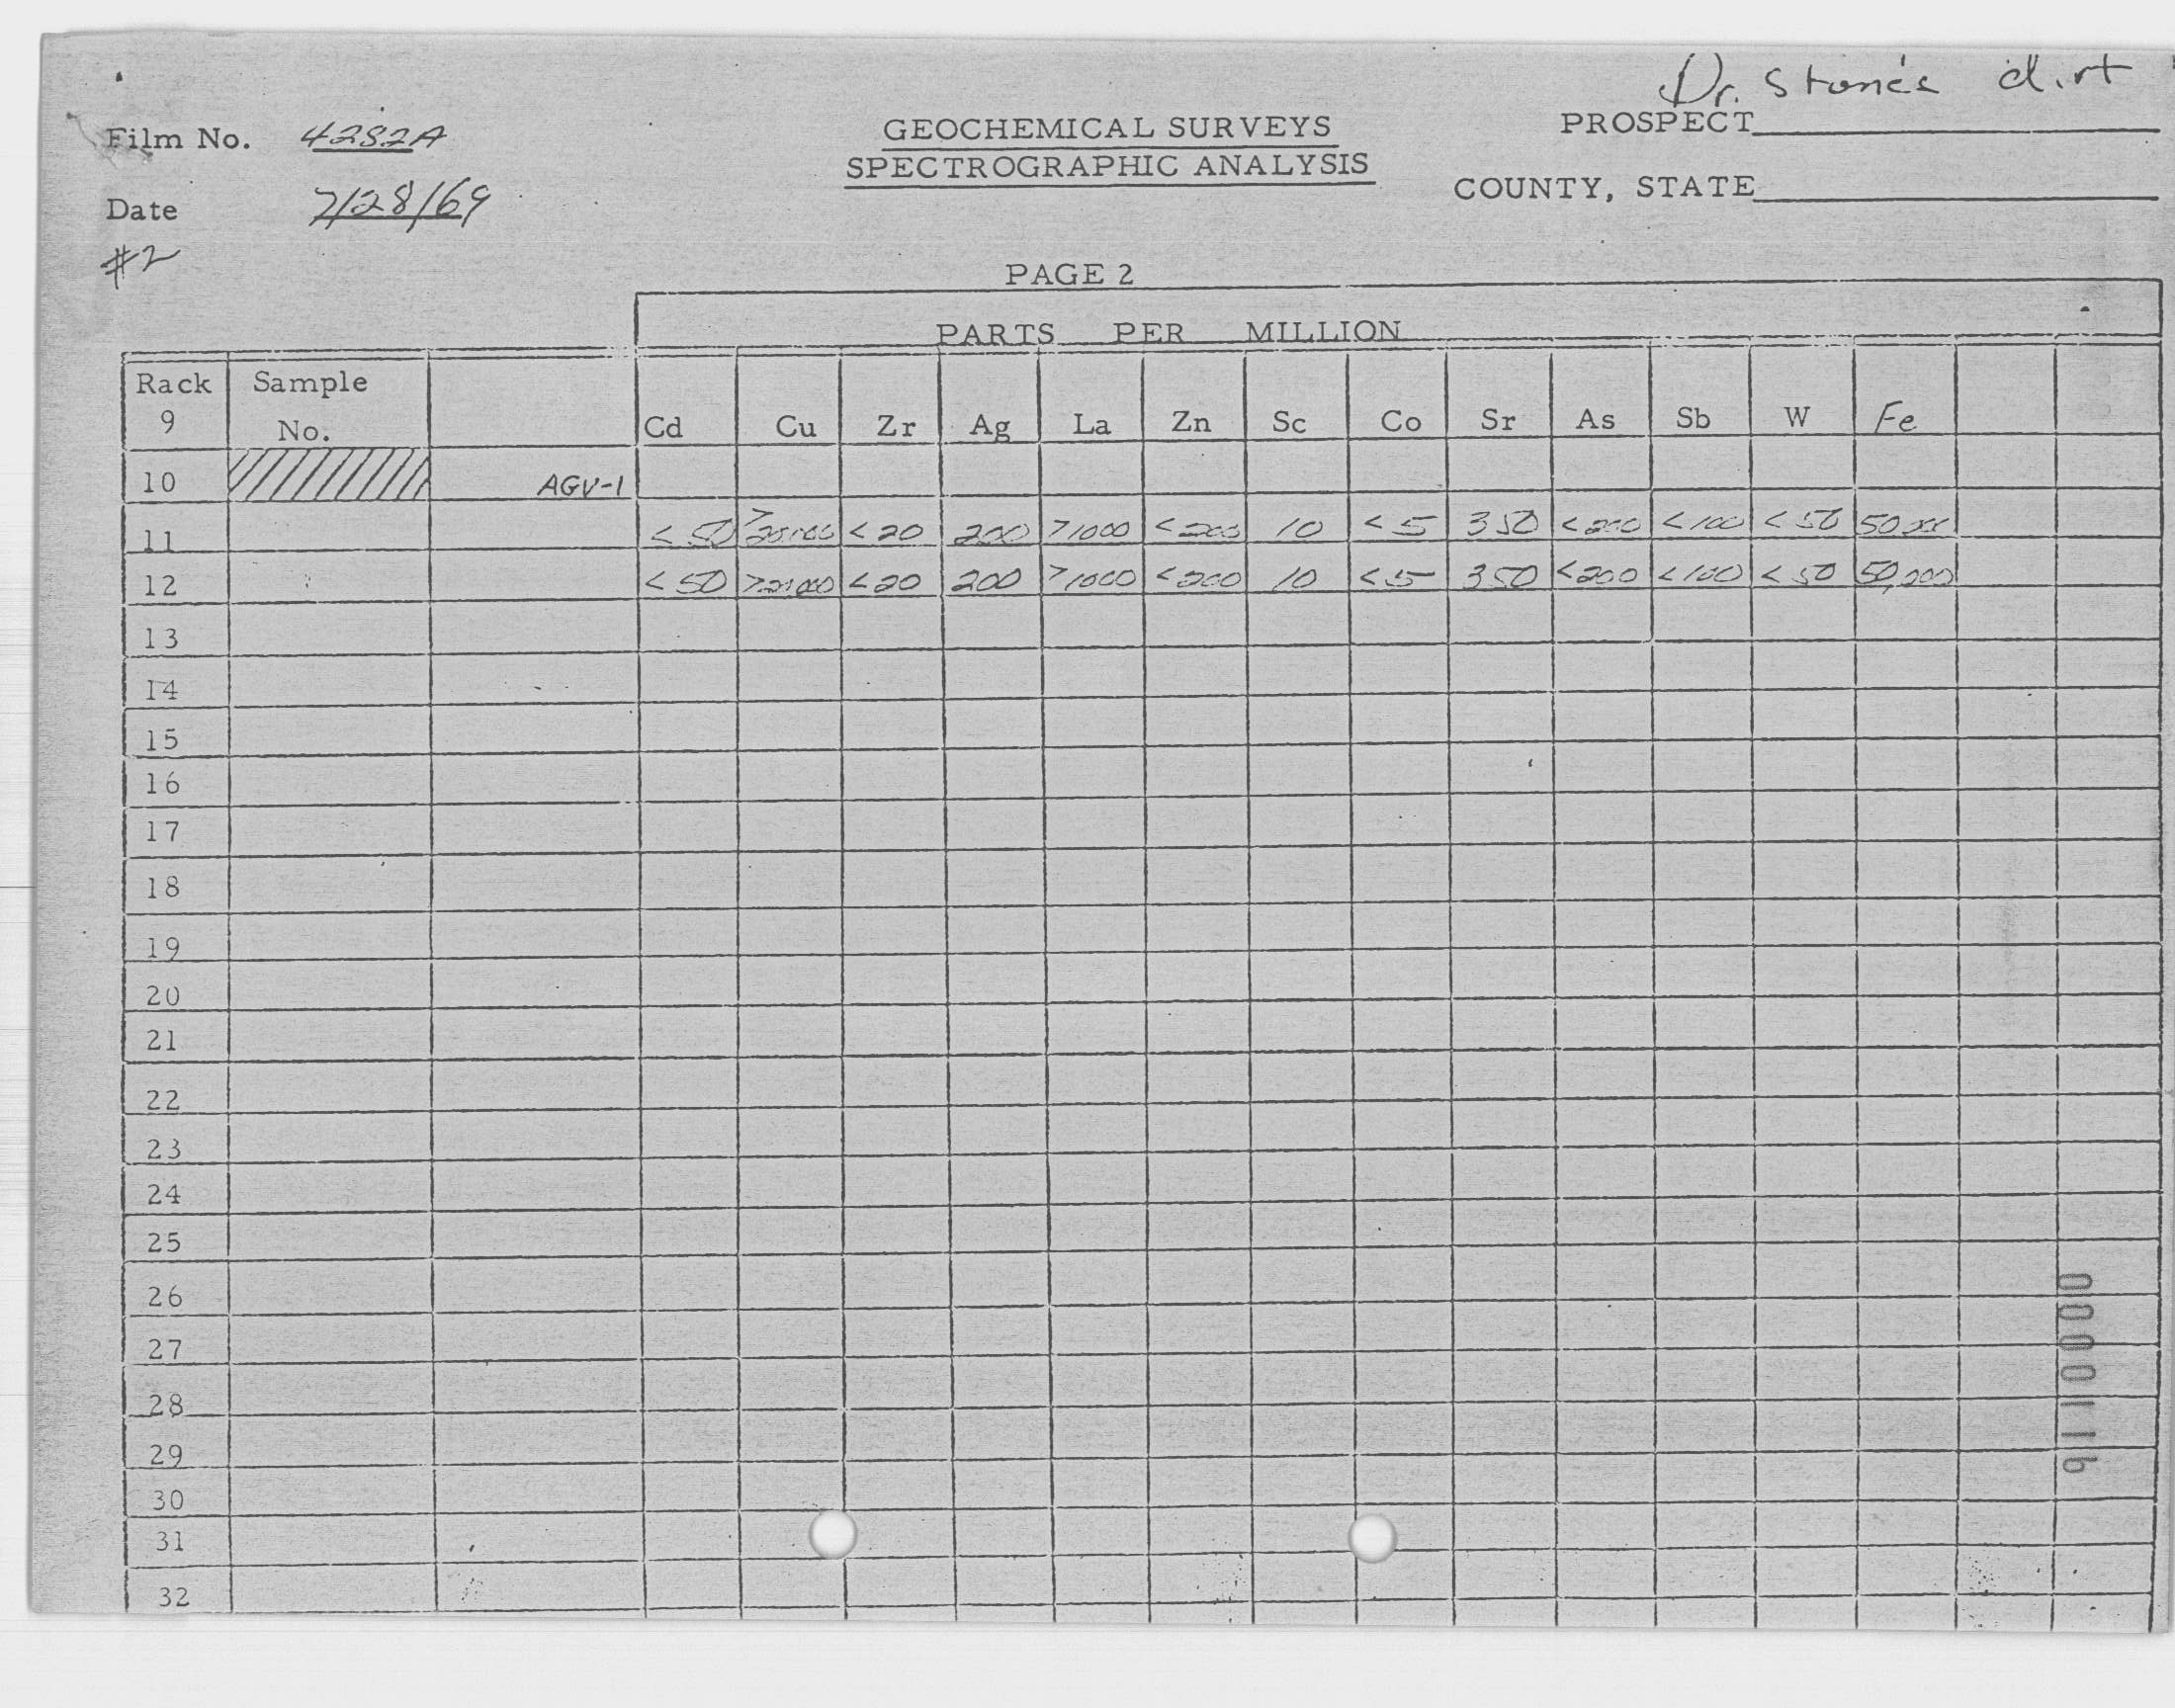 Dr. Stone's dirt
Film No. 4282A
GEOCHEMICAL SURVEYS
PROSPECT
SPECTROGRAPHIC ANALYSIS
COUNTY, STATE
Date 7/28/69
#2
PAGE 2
PARTS PER MILLION
Rack Sample
9 No. Cd Cu Zr Ag La Zn Sc Co Sr As Sb W Fe
10 AGV-1
11 <50 > <20 200 >1000 <200 10 <5 350 <200 <100 <50
12 <50 <20 200 >1000 <200 10 <5 350 <200 <100 <50 50,000
13
14
15
16
17
18
19
20
21
22
23
24
25
26
27
28
29
30
31
32
0000116